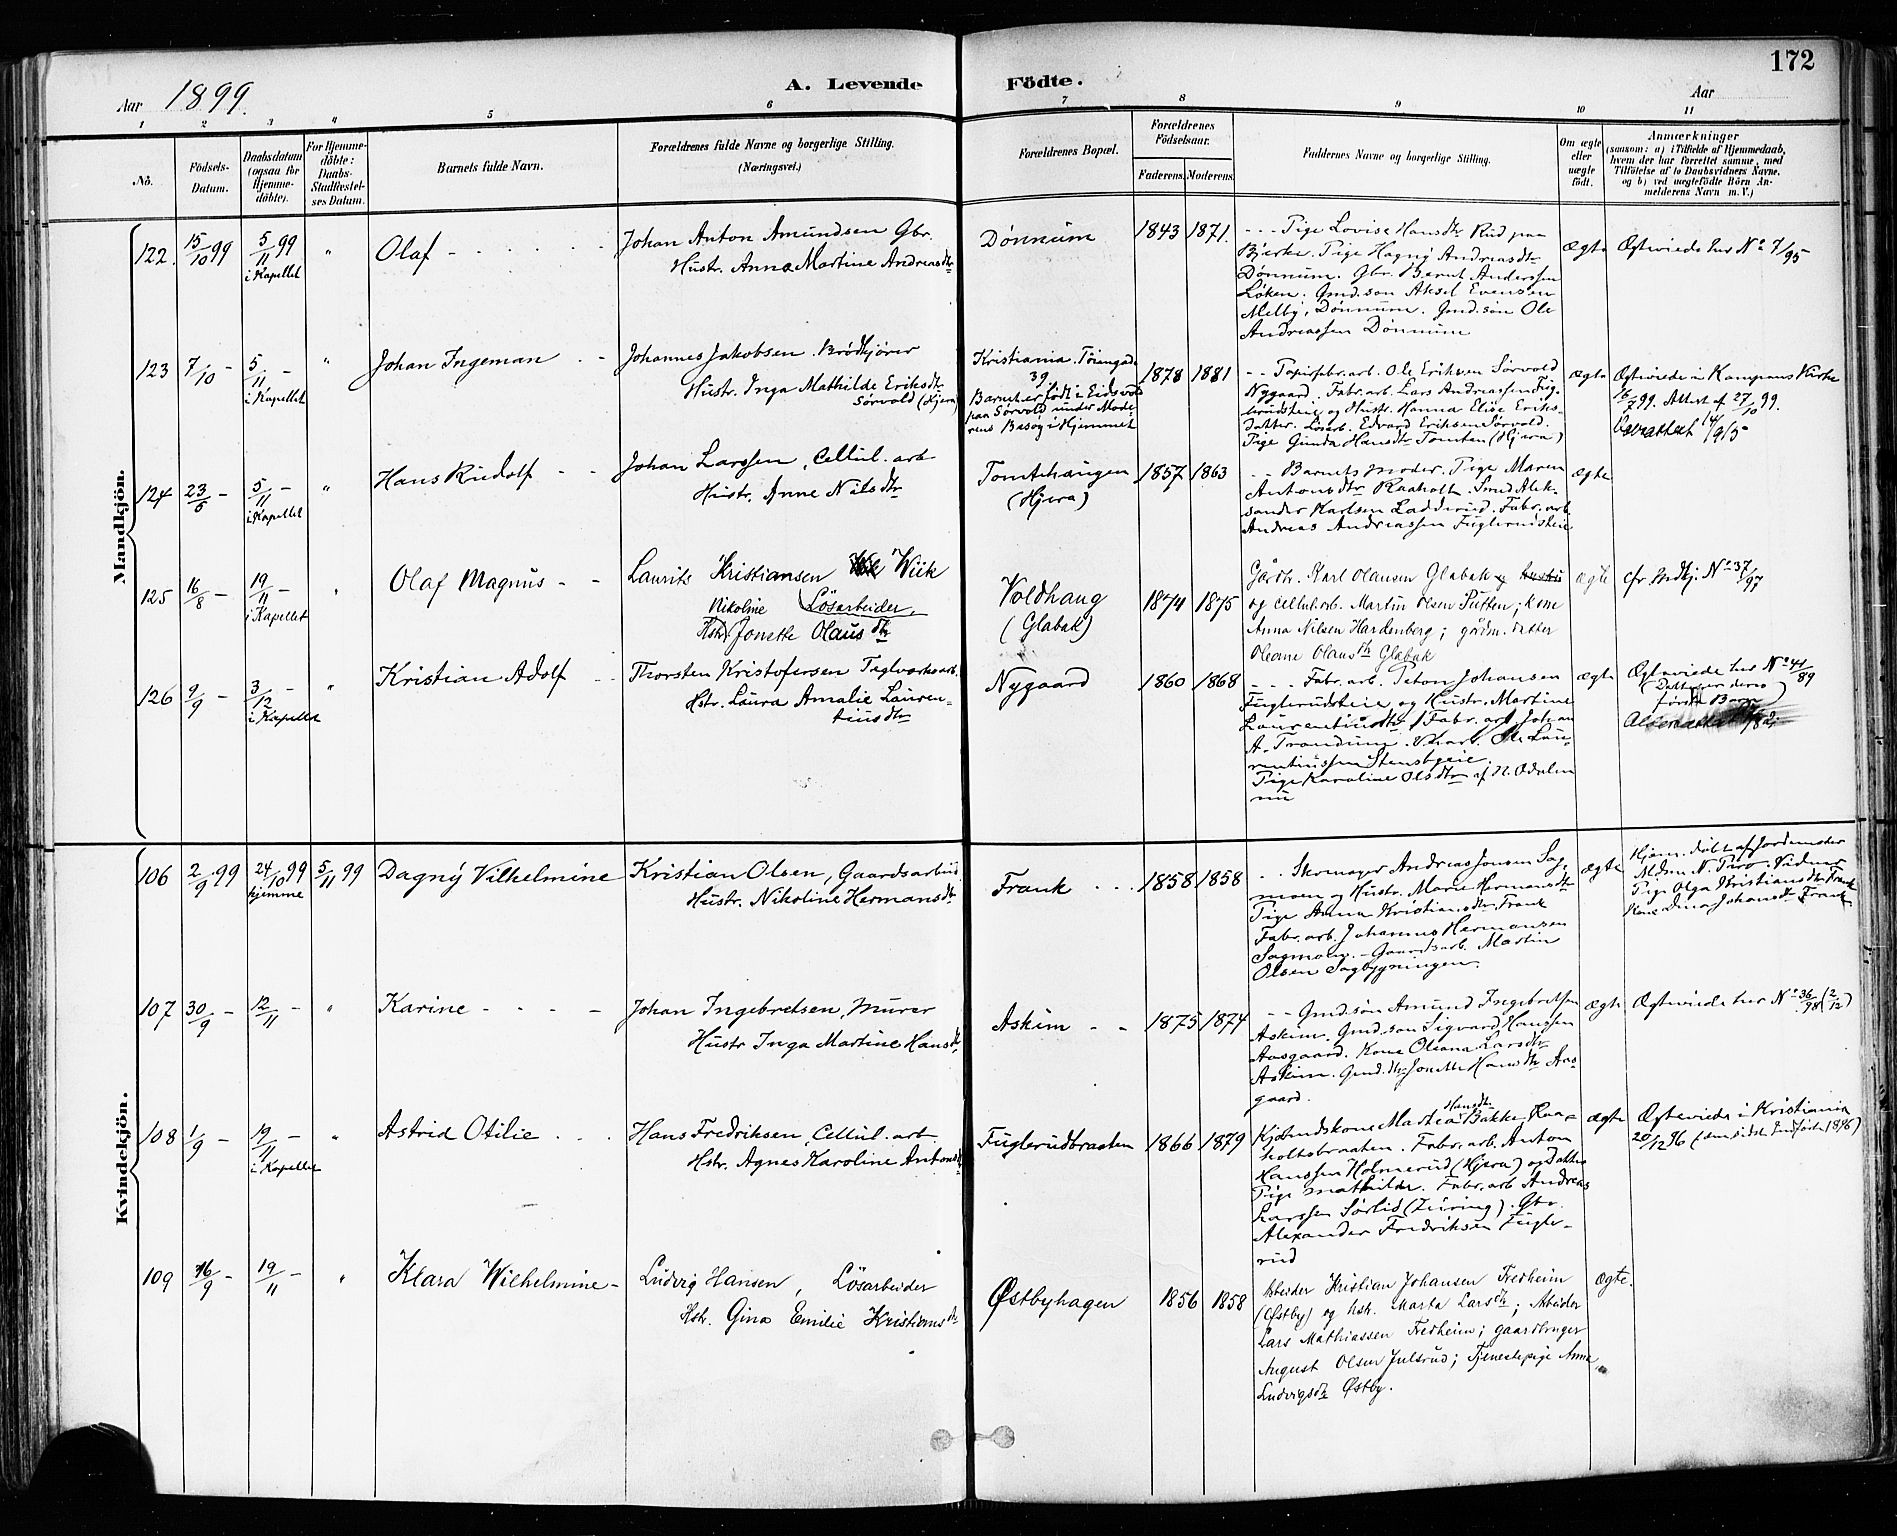 172
Aar 1899.
A. Levende Födte.
Aar
1 2 3 " 5 6 7 8 9 10 11
No.
Födsels-Datum.
Daabsdatum (ogsaa for Hjemme-döbte).
For Hjemme-döbte: Daabs-Stadfæstel-ses Datum.
Barnets fulde Navn.
Forældrenes fulde Navne og borgerlige Stilling.
(Næringsvei.)
Forældrenes Bopæl.
Forældrenes Födselsaar.
Faderens. Moderens.
Faddernes Navne og borgerlige Stilling.
Om ægte eller uægte födt.
Anmærkninger
(saasom: a) i Tilfælde af Hjemmedaab,
hvem der har forrettet samme, med
Tilföielse af to Daabsvidners Navne,
og b) ved uægtefödte Börn An-
melderens Navn m. V.)
Mandkjön.
122. 15/10 99 5/11 99 i Kapellet " Olaf
Johan Anton Amundsen Gbr.
Hustr. Anna Martine Andreasdtr
Dönnum 1843 1871.
Pige Lovise Hansdtr Rud paa
Bjerke. Pige Hagny Andreasdtr
Dönnum. Gbr. Bernt Anderssen
Löken. Gmd.sön Aksel Evensen
Melby, Dönnum. Gmd.sön Ole
Andreassen Dönnum
ægte
Ægteviede her No 7/95
123 7/10 - 5/11 - i Kapellet " Johan Ingeman
Johannes Jakobsen. Brödkjörer
Hustr. Inga Mathilde Eriksdtr
Sörvold (Hjera)
Kristiania. Töiengade
39
Barnet er födt i Eidsvold
paa Sörvold under Mode-
rens Besög i Hjemmet
1878 1881
Papirfabr.arb. Ole Eriksen Sörvold
Nygaard. Fabr.arb. Lars Andreassen Fug-
lerudsteie og Hustr. Hanna Elise Eriks-
datter. Lösarb. Edvard Eriksen Sörvold.
Pige Gunda Hansdtr Tomten (Hjera)
ægte
Ægteviede i Kampens Kirke
16/7 99. Attest af 27/10 99.
124 23/5 - 5/11 - i Kapellet " Hans Rudolf
Johan Larssen, Cellul. arb.
Hustr. Anne Nilsdtr
Tomtehaugen
(Hjera)
1857 1863
Barnets moder. Pige Maren
Antonsdtr Raaholt. Smed Alek-
sander Karlsen Ladderud. Fabr. arb.
Andreas Andreassen Fuglerudsteie
ægte
125 16/8 - 19/11 - i Kapellet " Olaf Magnus
Laurits Kristiansen Wiik
Nikoline Lösarbeider,
Hstr. Jonette Olausdtr
Voldhaug
(Glabak)
1874 1875
Gårdbr. Karl Olausen Glabak
og cellul.arb. Martin Olsen Putten; kone
Anna Nilsen Hardenberg; gårdm. datter
Oleane Olausdtr Glabak
ægte
cfr Mdkj. No 37/97
126 9/9 - 3/12 - i Kapellet " Kristian Adolf
Thorsten Kristofersen Teglværksarb.
Hstr. Laura Amalie Lauren-
tiusdtr
Nygaard 1860 1868
Fabr. arb. Peton Johansen
Fuglerudsteie og Hustr. Martine
Laurentiusdtr. Fabr. arb. Johan
A. Trandum. Ole Lau-
rentiussen Stensbyeie.
Pige Karoline Olsdtr af N. Odalen
ægte
Ægteviede her No 41/89
(Dette er deres
første Barn)
Kvindekjön.
106 2/9 99 24/10 99 hjemme 5/11 99 Dagny Vilhelmine
Kristian Olsen, Gaardsarbeid
Hustr. Nikoline Hermansdtr
Frank 1858 1858
Skomager Andreas Jonsen Sag-
moen og Hustr. Marie Hermansdtr
Pige Anna Kristiansdtr Frank
Fabr. arb. Johannes Hermansen
Sagmoen. - Gaardsarb. Martin
Olsen Sagbygningen.
ægte
Hjem. döbt af Jordemoder
Mdm N. Paro. Vidner
Pige Olga Kristiansdtr Frank
Kone Dina Johansdtr Frank
107 30/9 - 12/11 - " Karine
Johan Ingebretsen, Murer
Hustr Inga Martine Hansdtr
Askim 1875 1874
Gmd.sön Amund Ingebretsen
Askim. Gmd.sön Sigvard Hanssen
Aasgaard. Kone Oleana Larsdtr
Askim. Gmd.dtr Jonette Hansdtr Aas-
gaard.
ægte
Ægteviede her No 36/98 (2/12)
108 1/9 - 19/11 - i Kapellet " Astrid Otilie
Hans Fredriksen, Cellul. arb.
Hstr. Agnes Karoline Antonsdtr
Fuglerudbraaten 1866 1879
Kjöbmdskone Martea Hansdtr Bakke, Raa-
holtsbraaten. Fabr. arb. Anton
Hanssen Holmerud (Hjera) og Datter
Pige Mathilde. Fabr. arb. Andreas
Larssen Sörlid (Feiring). Gbr.
Alexander Fredriksen Fugle-
rud
ægte
Ægteviede i Kristiania
20/12 96 (
109 16/9 - 19/11 - " Klara Wilhelmine
Ludvig Hansen, Lösarbeider
Hstr. Gina Emilie Kristiansdtr
Østbyhagen 1856 1858
Arbeider Kristian Johansen Fredheim
(Østby) og hstr. Marta Larsdtr; Arbeider
Lars Mathiassen Fredheim; gaardbruger
August Olsen Julsrud; Tjenestepige Anna
Ludvigsdtr Østby.
ægte.